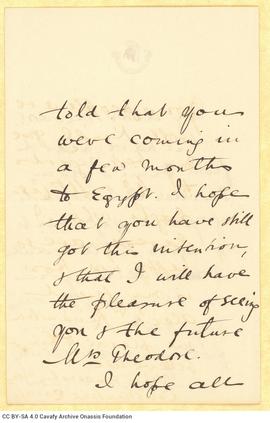 told that you
were coming in
a few months
to Egypt. I hope
that you have still
got this intention,
& that I will have
the pleasure of seeing
you & the future
Mrs Theodore.
I hope all
CC BY-SA 4.0 Cavafy Archive Onassis Foundation